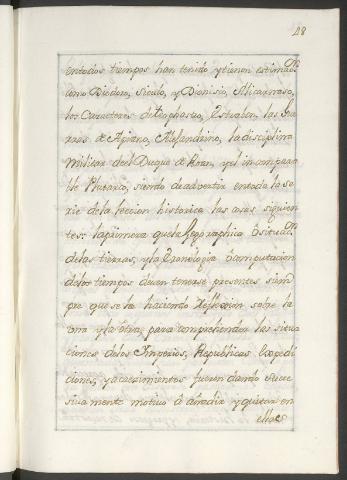 48
en todos tiempos han tenido y tienen estimac.on
como Diodoro, Siculo, y Dionisio, Alicarnaso,
los Caracteres de Teophasto, Estrabon, las Gue
rras de Apiano, Alejandrino, la disciplina
Militar del Duque de Roan, y el incompara
ble Plutarco, siendo de advertir en toda la se
rie de la leccion historica las cosas siguien
tes: la primera que la Geographica ô situac.on
de las tierras, y la Cronologia ô computacion
de los tiempos deven tenerse presentes siem
pre que se ba haciendo Reflexion sobre la
una y la otra para comprehender las situa
ciones de los Imperios, Republicas, Expedi
ciones, y acaecimientos fueren dando succe
sivamente motivo â añadir y quitar en
ellas